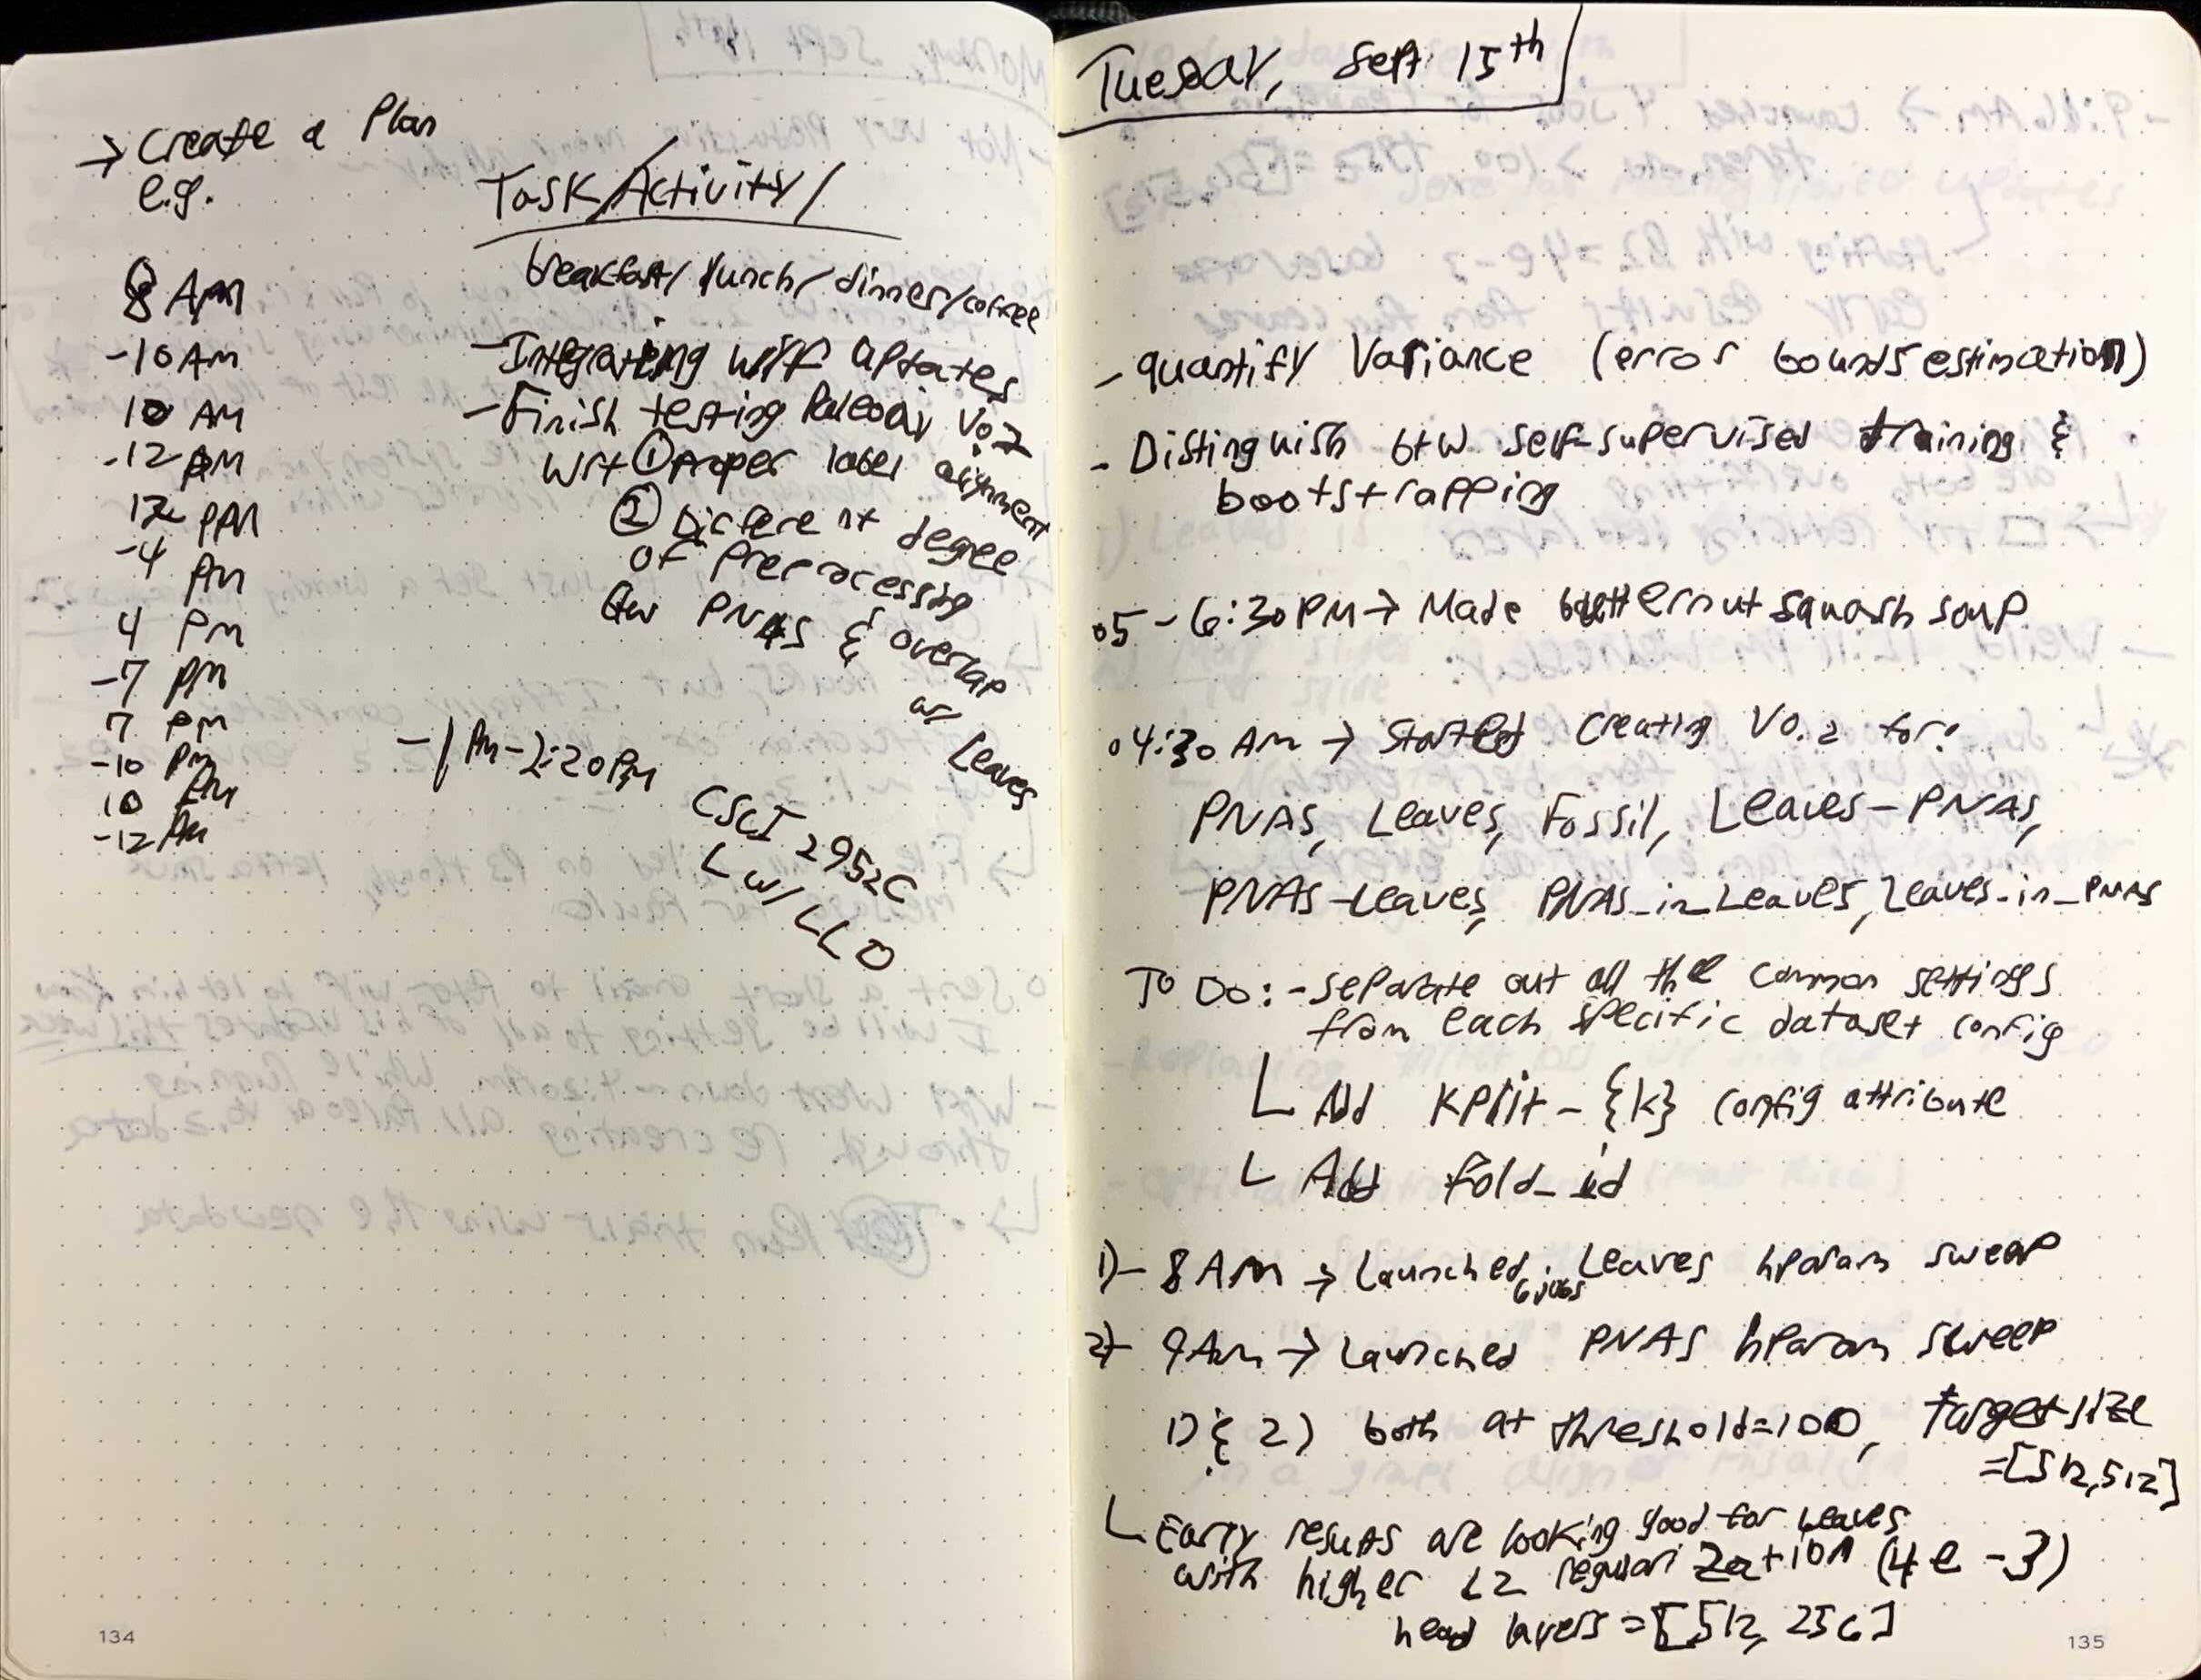 → Create a Plan
e.g.
Task/Activity/
breakfast/lunch/dinner/coffee
8 AM
-10 AM
10 AM
-12 PM
12 PM
-4 PM
4 PM
-7 PM
7 PM
-10 PM
10 PM
-12 AM
-Integrating wift updates
-Finish testing Paleoai V0.2
wrt ① proper label alignment
② Different degree
of Preprocessing
btw PNAS & overlap
w/ Leaves
-1 PM-2:20PM
CSCI 2952C
L w/ LLD
134
Tuesday, Sept. 15th
- quantify Variance (error bounds estimation)
- Distinguish btw self-supervised training &
bootstrapping
o5-6:30PM → Made butternut squash soup
o4:30 AM → Started creating V0.2 for:
PNAS, Leaves, Fossil, Leaves-PNAS,
PNAS-Leaves, PNAS_in_Leaves, Leaves_in_PNAS
To Do: -separate out all the common settings
from each specific dataset config
L Add Kplit-{k} config attribute
L Add fold_id
1)- 8 AM → Launched Leaves hparam sweep
6 jobs
2)- 9AM → Launched PNAS hparam sweep
1) & 2) both at threshold=100, target size
=[512,512]
L Early results are looking good for Leaves
with higher L2 regularization (4e-3)
head layers =[512, 256]
135